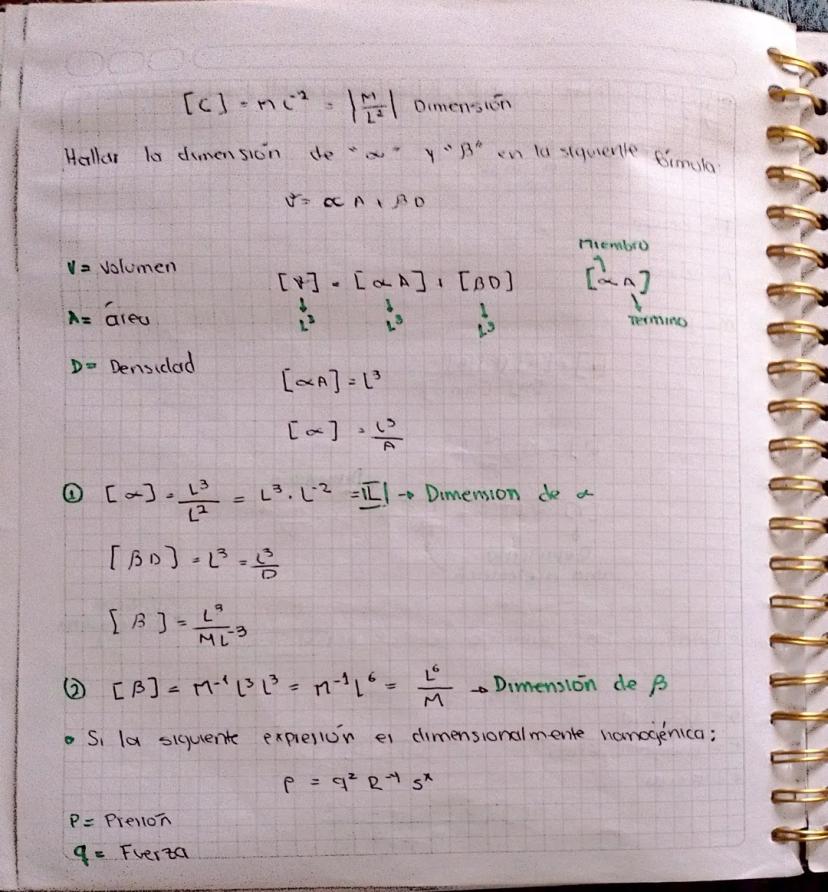 [C] = ML⁻² = |M/L²| Dimensión
Hallar la dimensión de "α" y "β" en la siguiente fórmula.
V = αA + βD
Miembro
V = Volumen [V] = [αA] + [βD] [αA]
A = área L³ L³ L³ Termino
D = Densidad
[αA] = L³
[α] = L³/A
① [α] = L³/L² = L³ · L⁻² = |L| → Dimension de α
[βD] = L³ = L³/D
[β] = L³/ML⁻³
② [β] = M⁻¹ L³ L³ = M⁻¹ L⁶ = L⁶/M → Dimensión de β
• Si la siguiente expresión es dimensionalmente homogénica:
P = q² R⁻ʸ Sˣ
P = Presión
q = Fuerza